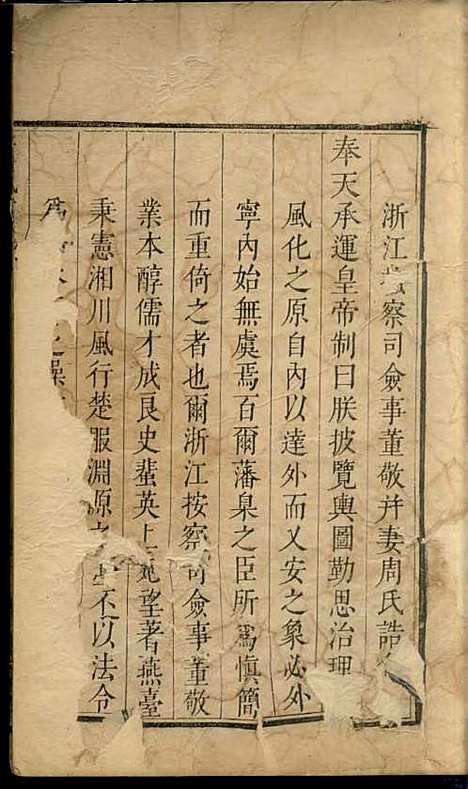 浙江察司僉事董敬幷妻周氏誥
奉天承運皇帝制曰朕披覽輿圖勤思治理
風化之原自內以達外而乂安之象必外
寧內始無虞焉百爾藩臬之臣所爲愼簡
而重倚之者也爾浙江按察司僉事董敬
業本醇儒才成良史蜚英上望著燕臺
秉憲湘川風行楚服淵原之不以法令
爲之